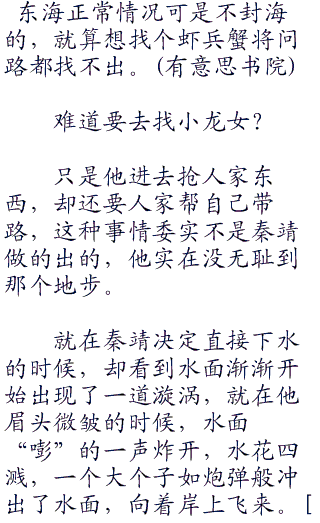 东海正常情况可是不封海
的，就算想找个虾兵蟹将问
路都找不出。(有意思书院)
难道要去找小龙女？
只是他进去抢人家东
西，却还要人家帮自己带
路，这种事情委实不是秦靖
做的出的，他实在没无耻到
那个地步。
就在秦靖决定直接下水
的时候，却看到水面渐渐开
始出现了一道漩涡，就在他
眉头微皱的时候，水面
“嘭”的一声炸开，水花四
溅，一个大个子如炮弹般冲
出了水面，向着岸上飞来。[